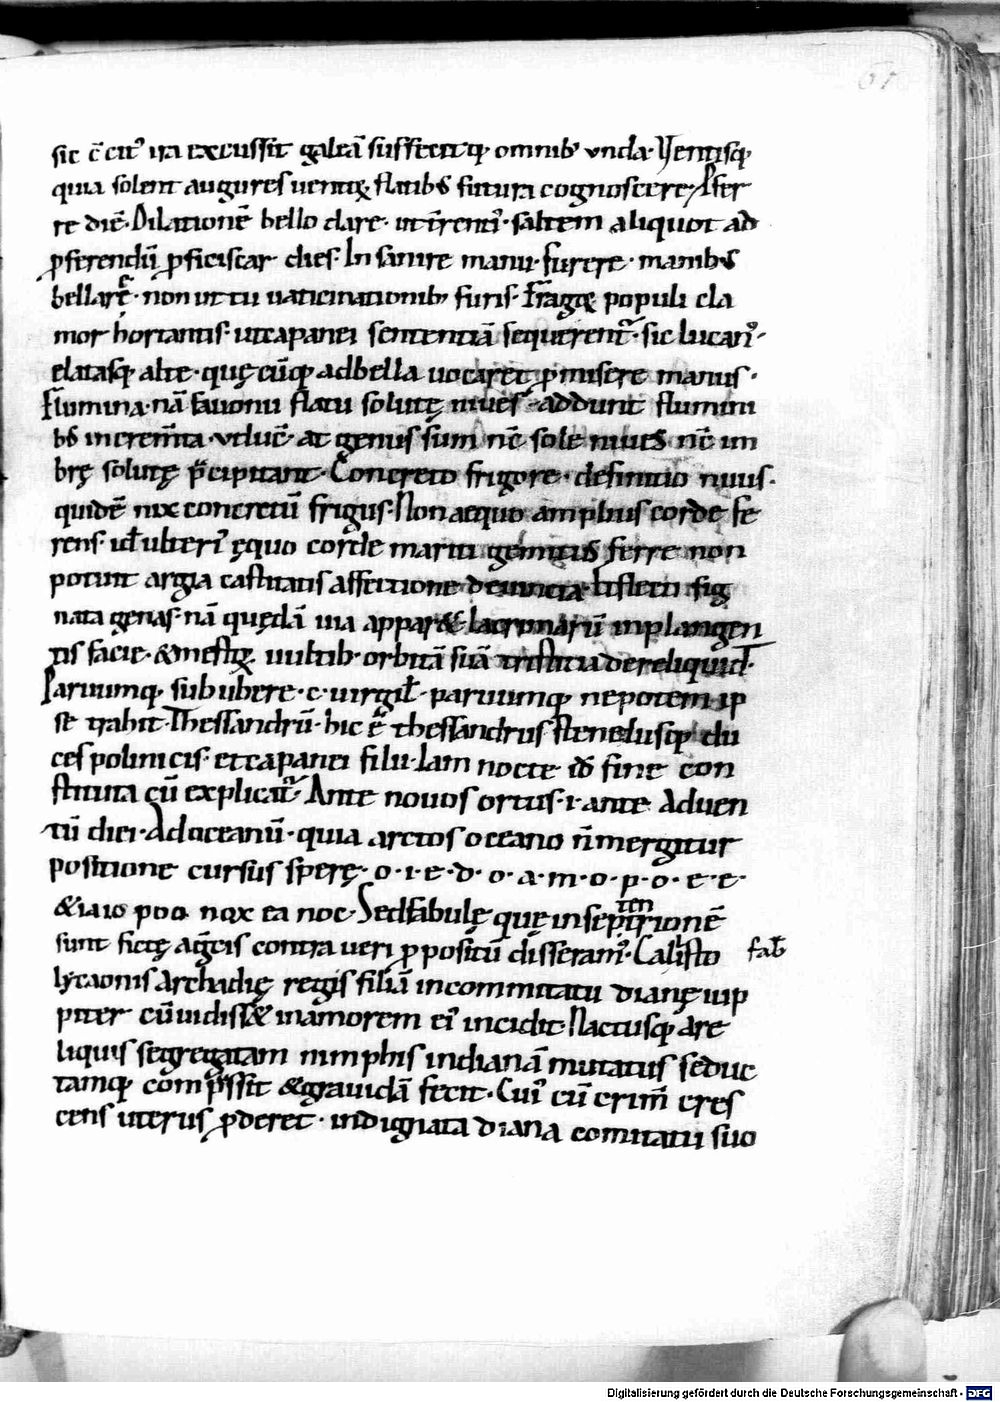 61
sic c̄citꝰ ita excussit galeā suffecitq; omnib; vnda. Ventisq;
quia solent augures uentoꝝ flatib; futura cognoscere. Pfer
re diē. Dilationē bello dare. ut t̄renti. saltem aliquot ad
ꝓferendū ꝓficiscar dies. Insanire manu. furere. manib;
bellare. non ut tu uaticinationib; furis. Fragor populi cla
mor hortantis. ut capanei sententiā sequerent̄. sic lucanꝰ.
elatasq; alte. quęcūq; ad bella uocaret ꝓmisere manus.
Flumina. nā fauonii flatu solutę niues. addunt flumini
b; increm̄ta. at genus sum nc̄ sole niues nc̄ im
bre solutę p̄cipitant. Concreto frigore. definitio niuis.
quidē nix concretū frigus. Non aequo amplius corde fe
rens. id ulteriꝰ ęquo corde mariti gemitus ferre non
potuit argia castitatis affectione deuincta. Et fletu sig
nata genas. nā quędā uia appar& lacrimarū in plangen
tis facie. & mestoꝝ uultib; orbitā suā tristitia dereliquid.
Paruumq; sub ubere. c. uirgił. paruumq; nepotem ip
se trahit. Thessandrū. hic ē thessandrus stenelusq; du
ces polinicis. et capanei filii. Iam nocte. id̄ fine con
stituta cū explicat̄. Ante nouos ortus. i. ante aduen
tū diei. Ad oceanū. quia arctos oceano n̄ mergitur
positione cursus sperę. o. i. e. d. o. a. m. o. p. o. e. e.
& iaio poo nox ea noc. Sed fabulę quę in septentrionē
sunt fictę ag̃cis contra ueri ꝓpositū disseramꝰ. Calisto fab̄
lycaonis archadię regis filiā in commitatu dianę iup
piter cū uidiss& in amorem eiꝰ incidit. Nactusq; a re
liquis segregatam nimphis in dianā mutatus seduc
tamq; comp̄ssit & grauidā fecit. Cuiꝰ cū crim̄ cres
cens uterus ꝓderet. indignata diana comitatu suo
Digitalisierung gefördert durch die Deutsche Forschungsgemeinschaft - DFG